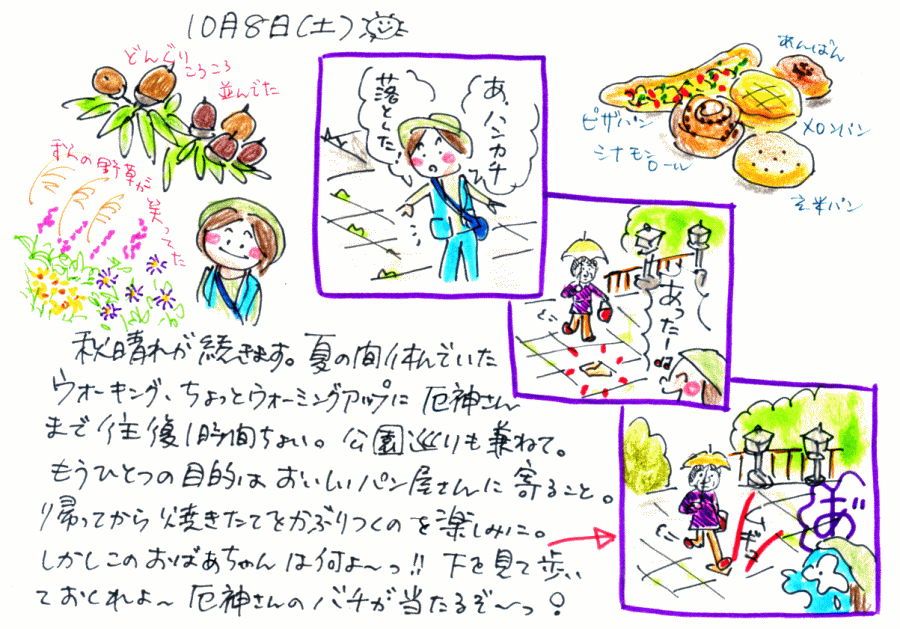 10月8日(土)
どんぐり
ころころ
並んでた
秋の野草が
笑ってた
あ、ハンカチ
落とした
あんぱん
ピザパン
メロンパン
シナモンロール
玄米パン
あったー
ギュッ
秋晴れが続きます。夏の間休んでいた
ウォーキング、ちょっとウォーミングアップに厄神さん
まで往復1時間ちょい。公園巡りも兼ねて。
もうひとつの目的はおいしいパン屋さんに寄ること。
帰ってから焼きたてをかぶりつくのを楽しみに。
しかしこのおばあちゃんは何よ〜っ!! 下を見て歩い
ておくれよ〜 厄神さんのバチが当たるぞ〜っ!